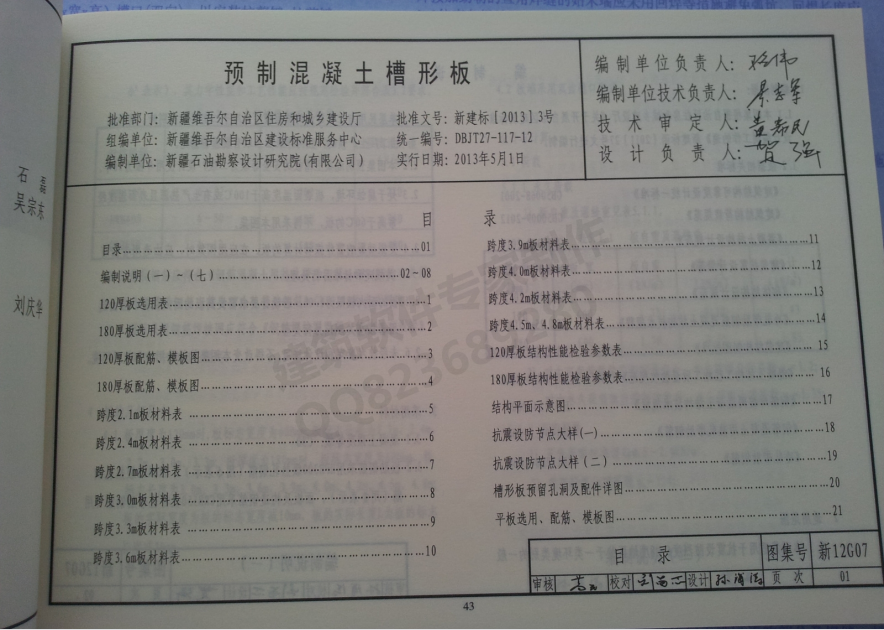 石 磊
吴宗东
刘庆华
预制混凝土槽形板
批准部门：新疆维吾尔自治区住房和城乡建设厅
组编单位：新疆维吾尔自治区建设标准服务中心
编制单位：新疆石油勘察设计研究院(有限公司)
批准文号：新建标[2013]3号
统一编号：DBJT27-117-12
实行日期：2013年5月1日
编制单位负责人：
编制单位技术负责人：
技术审定人：
设计负责人：贺强
目 录
目录……01
编制说明(一)~(七)……02~08
120厚板选用表……1
180厚板选用表……2
120厚板配筋、模板图……3
180厚板配筋、模板图……4
跨度2.1m板材料表……5
跨度2.4m板材料表……6
跨度2.7m板材料表……7
跨度3.0m板材料表……8
跨度3.3m板材料表……9
跨度3.6m板材料表……10
跨度3.9m板材料表……11
跨度4.0m板材料表……12
跨度4.2m板材料表……13
跨度4.5m、4.8m板材料表……14
120厚板结构性能检验参数表……15
180厚板结构性能检验参数表……16
结构平面示意图……17
抗震设防节点大样(一)……18
抗震设防节点大样(二)……19
槽形板预留孔洞及配件详图……20
平板选用、配筋、模板图……21
目 录 图集号 新12G07
审核 校对 设计 页 次 01
43